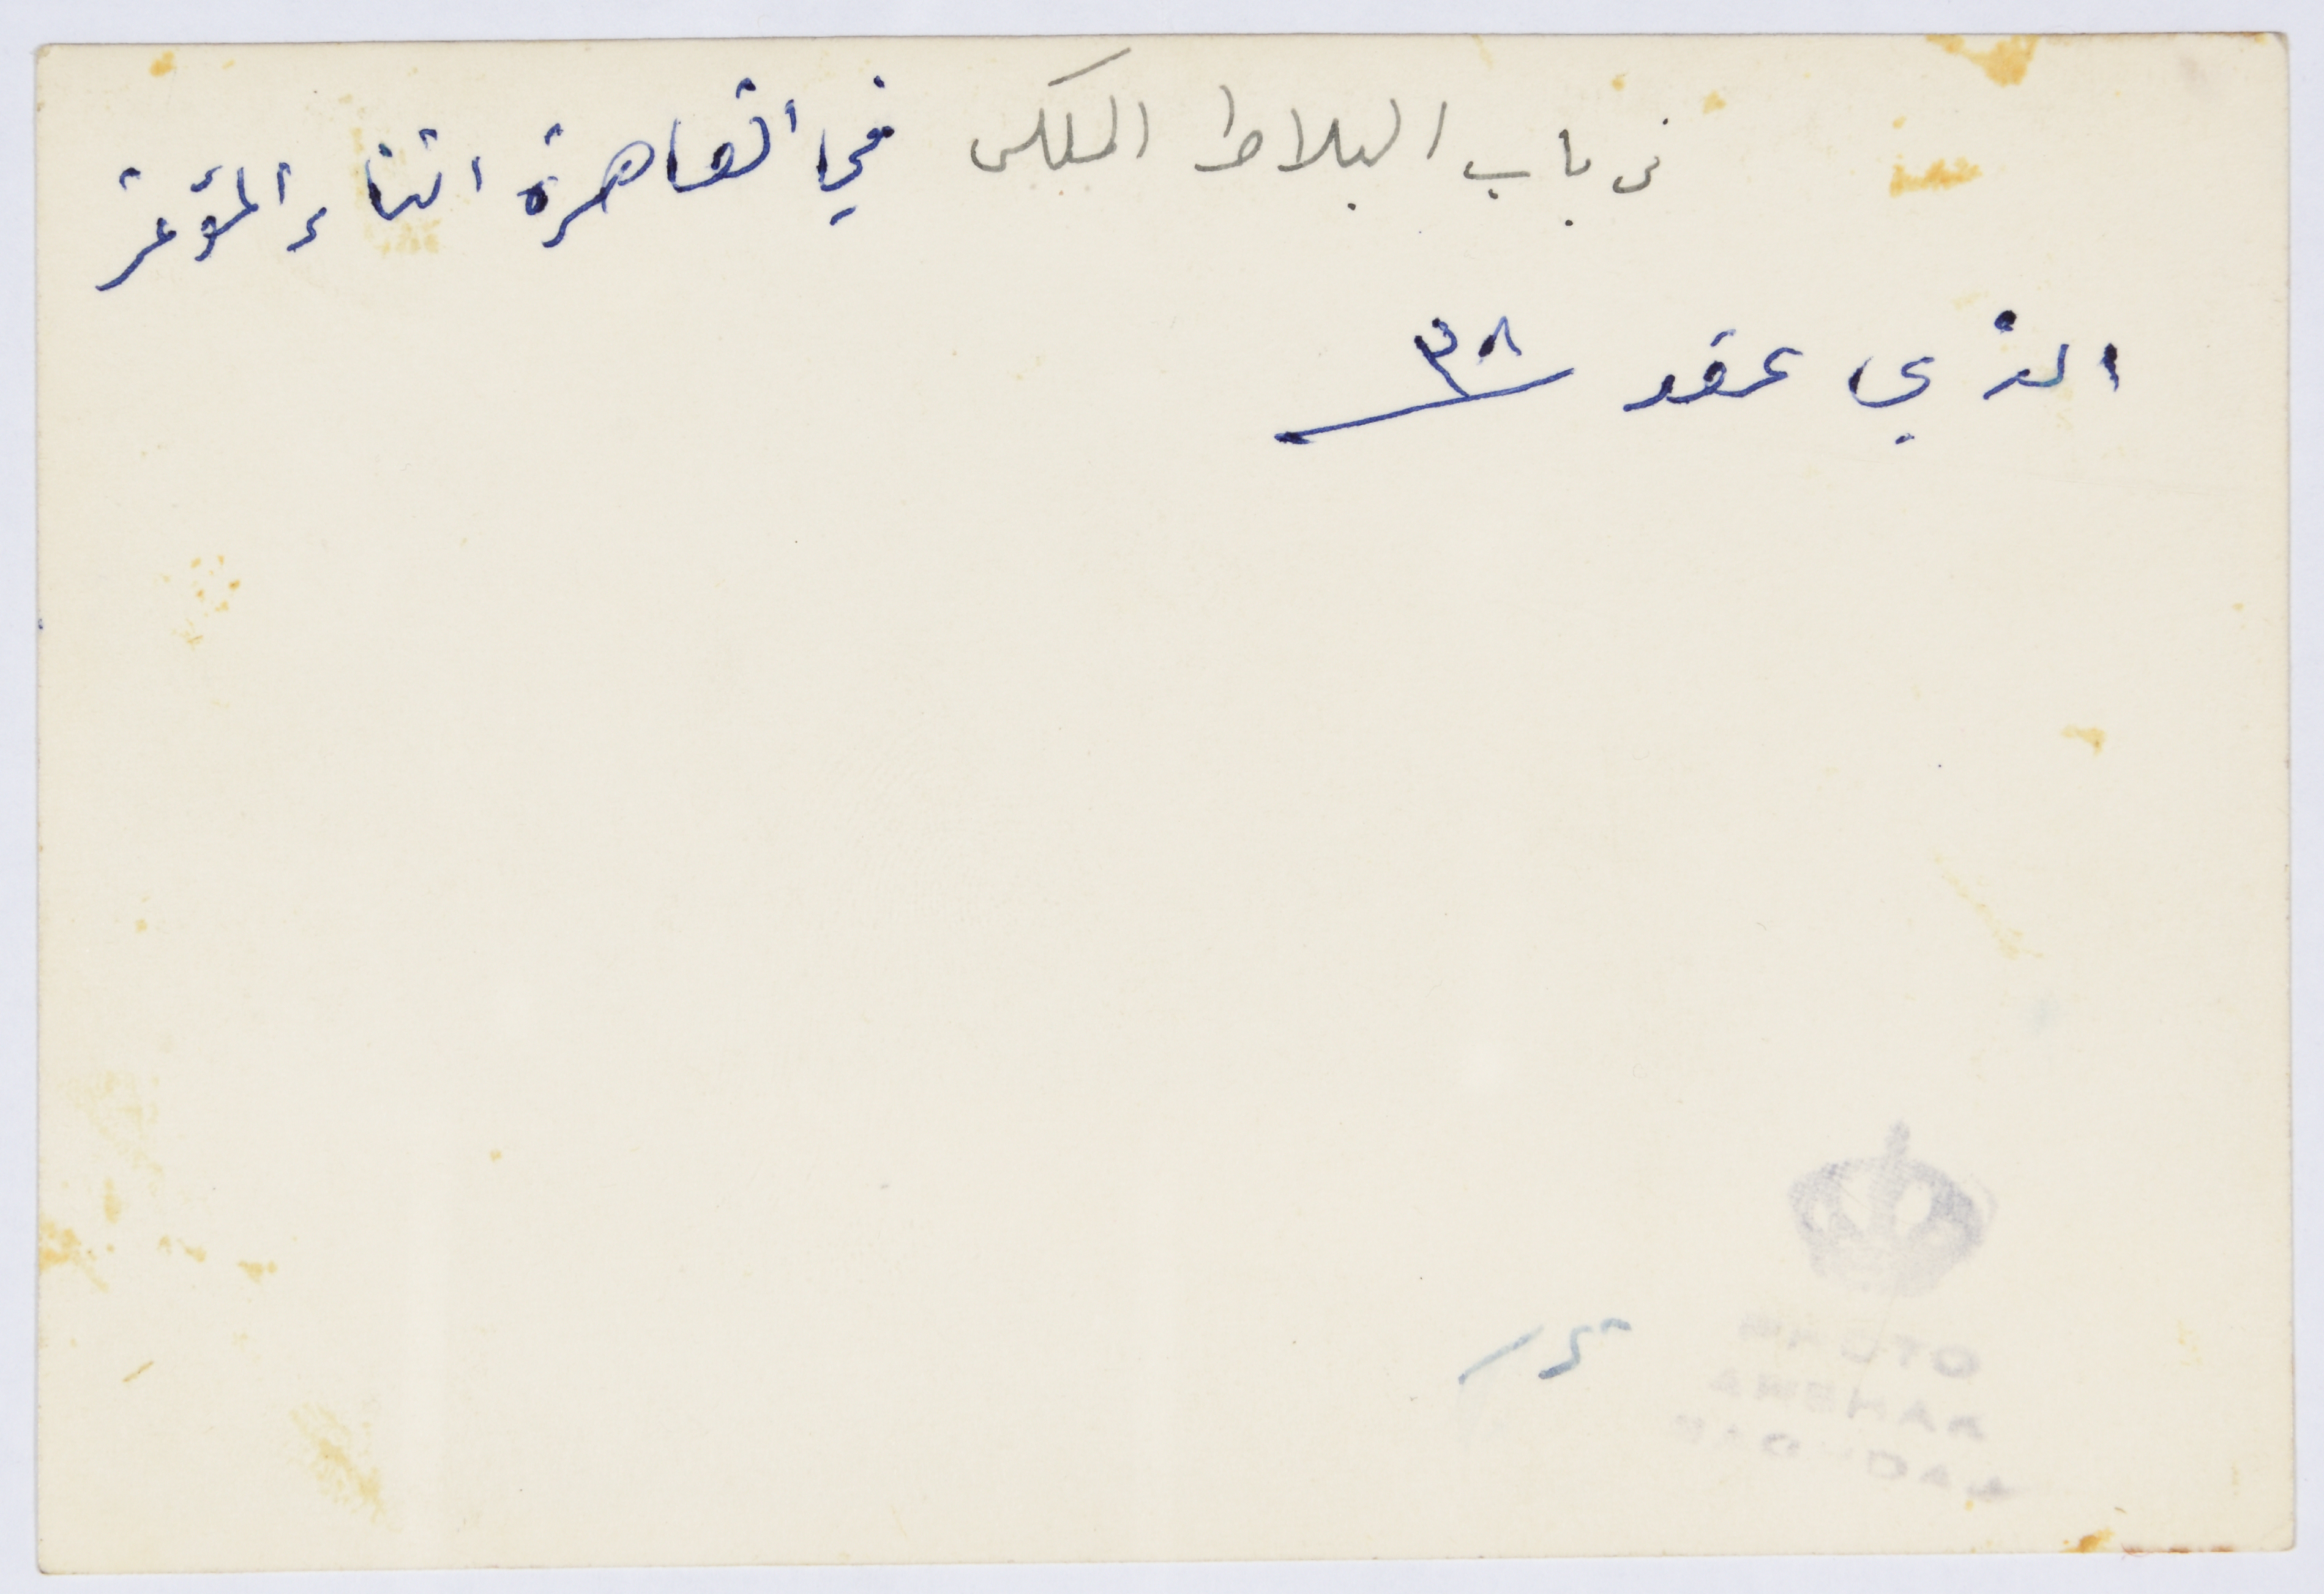 في باب البلاط الملكي في القاهرة اثناء المؤتمر
الذي عقد ٣٨
PHOTO
ARSHAK